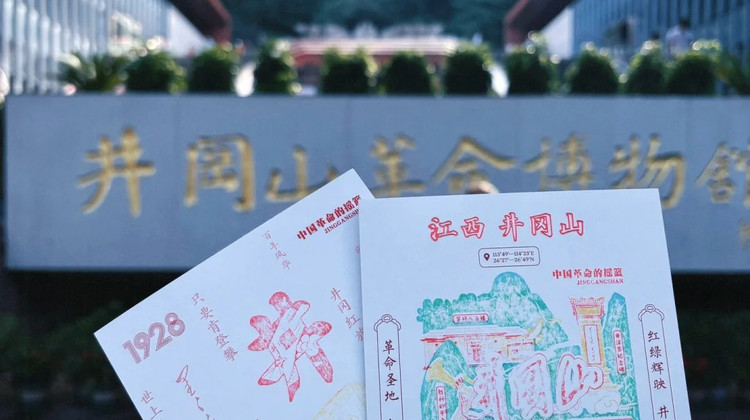 井冈山革命博物馆
中国革命的摇篮
JINGGANGSHAN
百年风华
井冈红
只要肯登攀
世上
1928
井
江西 井冈山
113°49'—114°23'E
26°27'—26°49'N
中国革命的摇篮
JINGGANGSHAN
革命圣地
红绿辉映 井
井冈山